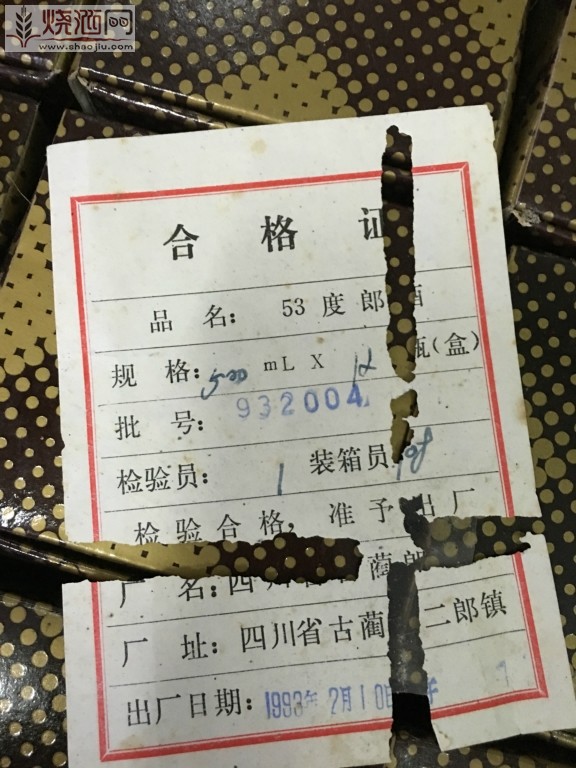 烧酒网
www.shaojiu.com
合格证
品名: 53度郎酒
规格: 500 mL X 12 瓶(盒)
批号: 932004
检验员: 1 装箱员
检验合格, 准予出厂
厂名: 四川 蔺郎
厂址: 四川省古蔺 二郎镇
出厂日期: 1993年2月10日